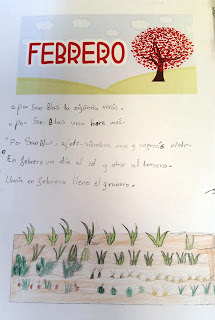 FEBRERO
Por San Blas la cigüeña verás.
Por San Blas una hora más.
Por San Blas, ajete, siembra uno y cogerás siete.
En febrero un día al sol y otro al brasero.
Lluvia en febrero llena el granero.